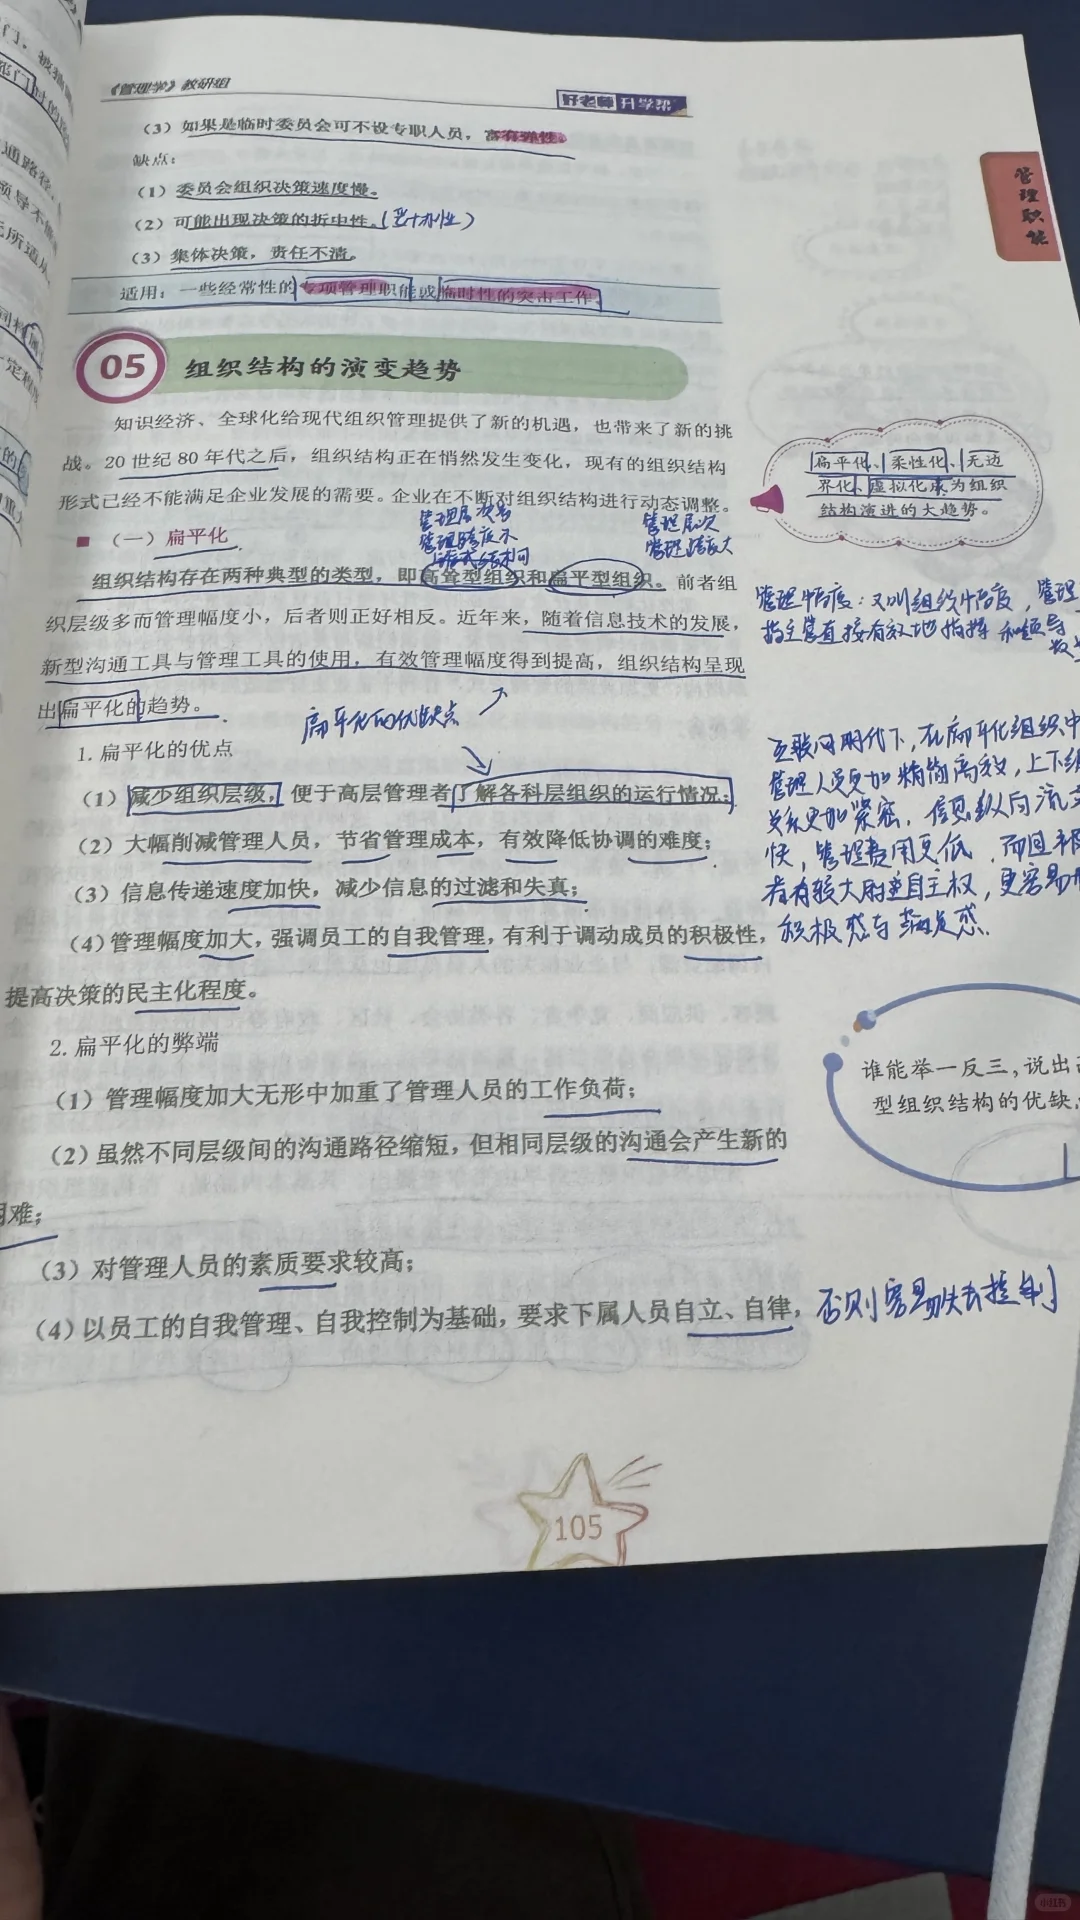 《管理学》教研组
好老师 升学帮
(3)如果是临时委员会可不设专职人员，富有弹性。
缺点：
(1)委员会组织决策速度慢。
(2)可能出现决策的折中性。
(3)集体决策，责任不清。
适用：一些经常性的专项管理职能或临时性的突击工作。
管理职能
05 组织结构的演变趋势
知识经济、全球化给现代组织管理提供了新的机遇，也带来了新的挑
战。20世纪80年代之后，组织结构正在悄然发生变化，现有的组织结构
形式已经不能满足企业发展的需要。企业在不断对组织结构进行动态调整。
扁平化、柔性化、无边
界化、虚拟化成为组织
结构演进的大趋势。
■ (一)扁平化
管理层次
管理幅度大
组织结构存在两种典型的类型，即高耸型组织和扁平型组织。前者组
织层级多而管理幅度小，后者则正好相反。近年来，随着信息技术的发展，
新型沟通工具与管理工具的使用，有效管理幅度得到提高，组织结构呈现
出扁平化的趋势。
管理幅度：又叫组织幅度，管理
指主管直接有效地指挥和领导
扁平化的优缺点
1. 扁平化的优点
(1)减少组织层级，便于高层管理者了解各科层组织的运行情况；
(2)大幅削减管理人员，节省管理成本，有效降低协调的难度；
(3)信息传递速度加快，减少信息的过滤和失真；
(4)管理幅度加大，强调员工的自我管理，有利于调动成员的积极性，
提高决策的民主化程度。
互联网时代下，在扁平化组织中
管理人员更加精简高效，上下级
关系更加紧密，信息纵向流
快，管理费用更低，而且被
者有较大的自主权，更容易
积极感与满足感.
2. 扁平化的弊端
(1)管理幅度加大无形中加重了管理人员的工作负荷；
(2)虽然不同层级间的沟通路径缩短，但相同层级的沟通会产生新的
困难；
(3)对管理人员的素质要求较高；
(4)以员工的自我管理、自我控制为基础，要求下属人员自立、自律，
否则容易失去控制
谁能举一反三，说出
型组织结构的优缺
105
小红书